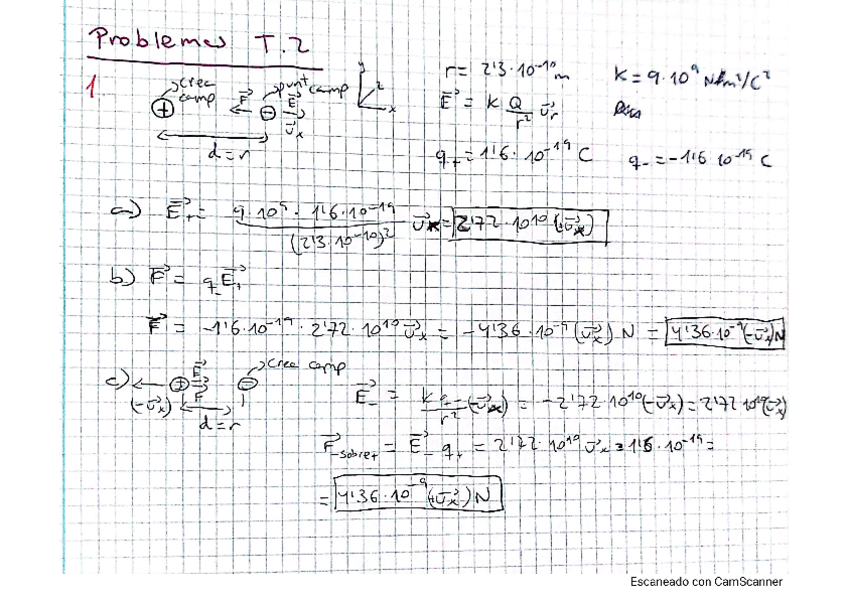 Problemes T.2
1
crea camp
punt camp
F E
y z x
u_x
d=r
r = 2'3·10^-10 m
K = 9·10^9 N·m²/C²
E = K Q/r² u_r
q+ = 1'6·10^-19 C
q- = -1'6·10^-19 C
a) E+ = 9·10^9 · 1'6·10^-19 / (2'3·10^-10)² u_x = 2'72·10^10 (+u_x)
b) F = q- E+
F = -1'6·10^-19 · 2'72·10^10 u_x = -4'36·10^-9 (u_x) N = 4'36·10^-9 (-u_x) N
c) + E F - crea camp
(-u_x)
d=r
E- = K q-/r² (-u_x) = -2'72·10^10 (-u_x) = 2'72·10^10 (u_x)
F-sobre+ = E- q+ = 2'72·10^10 u_x · 1'6·10^-19 =
= 4'36·10^-9 (+u_x) N
Escaneado con CamScanner